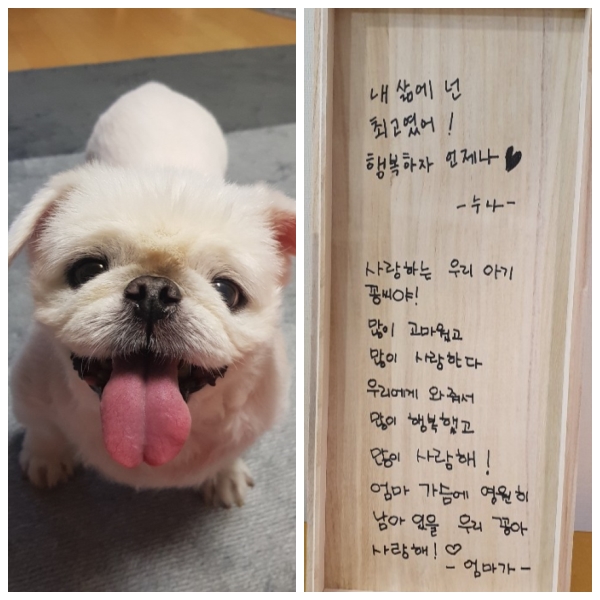 내 삶에 넌
최고였어!
행복하자 언제나 ♥
-누나-
사랑하는 우리 아기
꽁씨야!
많이 고마웠고
많이 사랑한다
우리에게 와줘서
많이 행복했고
많이 사랑해!
엄마 가슴에 영원히
남아 있을 우리 꽁아
사랑해! ♡
- 엄마가 -